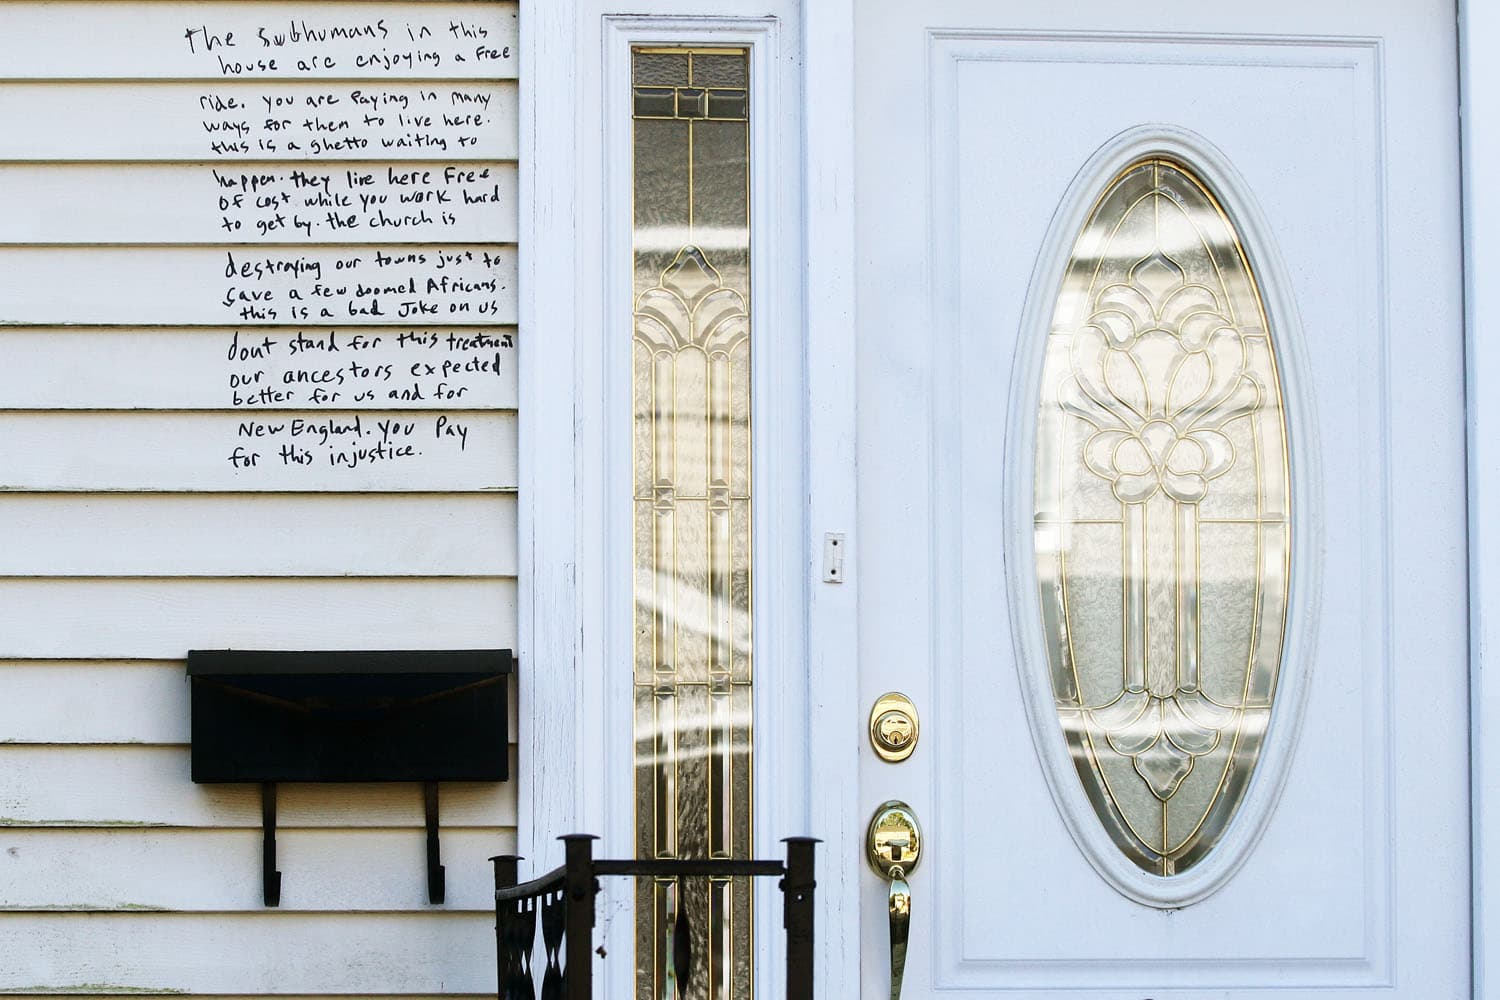 The subhumans in this
house are enjoying a free
ride. you are paying in many
ways for them to live here.
this is a ghetto waiting to
happen. they live here free
of cost while you work hard
to get by. the church is
destroying our towns just to
save a few doomed Africans.
this is a bad joke on us
dont stand for this treatment
our ancestors expected
better for us and for
New England. you pay
for this injustice.